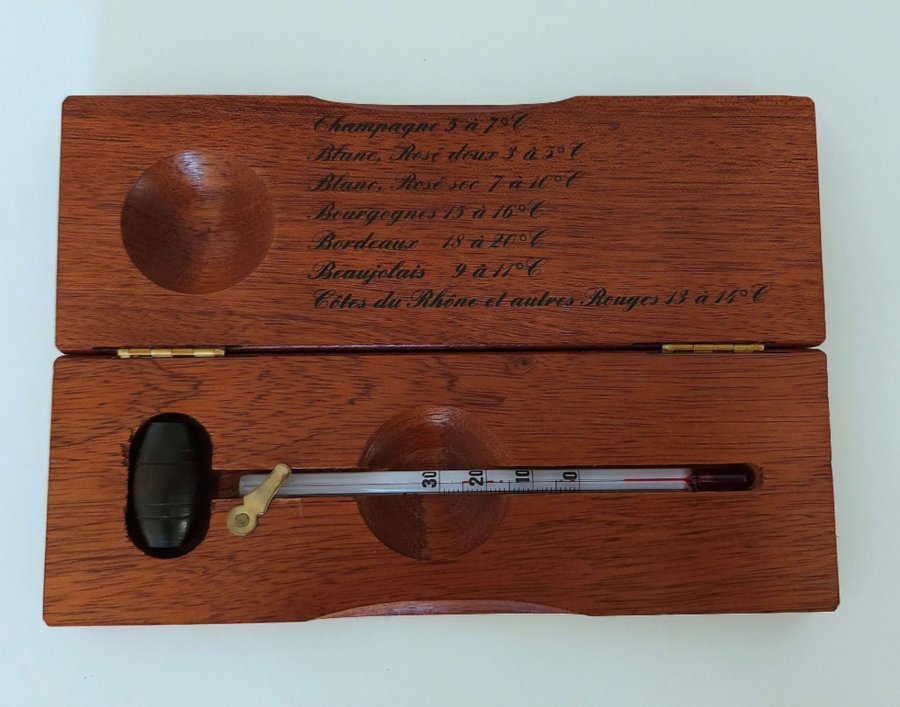 Champagne 5 à 7°C
Blanc, Rosé doux 3 à 5°C
Blanc, Rosé sec 7 à 10°C
Bourgognes 15 à 16°C
Bordeaux 18 à 20°C
Beaujolais 9 à 11°C
Côtes du Rhône et autres Rouges 13 à 14°C
30 20 10 0